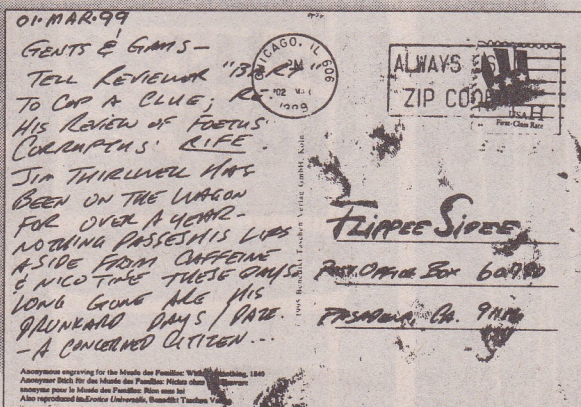 01·MAR·99
GENTS & GAMS —
TELL REVIEWER "BART"
TO COP A CLUE; RE
HIS REVIEW OF FOETUS'
CORRUPTUS' RIFE.
JIM THIRLWELL HAS
BEEN ON THE WAGON
FOR OVER A YEAR —
NOTHING PASSES HIS LIPS
ASIDE FROM CAFFEINE
& NICOTINE THESE DAYS.
LONG GONE ARE HIS
DRUNKARD DAYS/DAZE.
— A CONCERNED CITIZEN...
CHICAGO, IL 606
PM
02 MAR
1999
ALWAYS
ZIP CODE
USA H
First-Class Rate
© 1995 Benedikt Taschen Verlag GmbH, Köln
FLIPPEE SIDEE
POST OFFICE BOX
PASADENA, CA.
Anonymous engraving for the Musée des Familles: nothing, 1840
Anonymer Stich für das Musée des Familles: Nichts ohne
anonyme pour le Musée des Familles: Rien sans lui
Also reproduced in Erotica Universalis, Benedikt Taschen